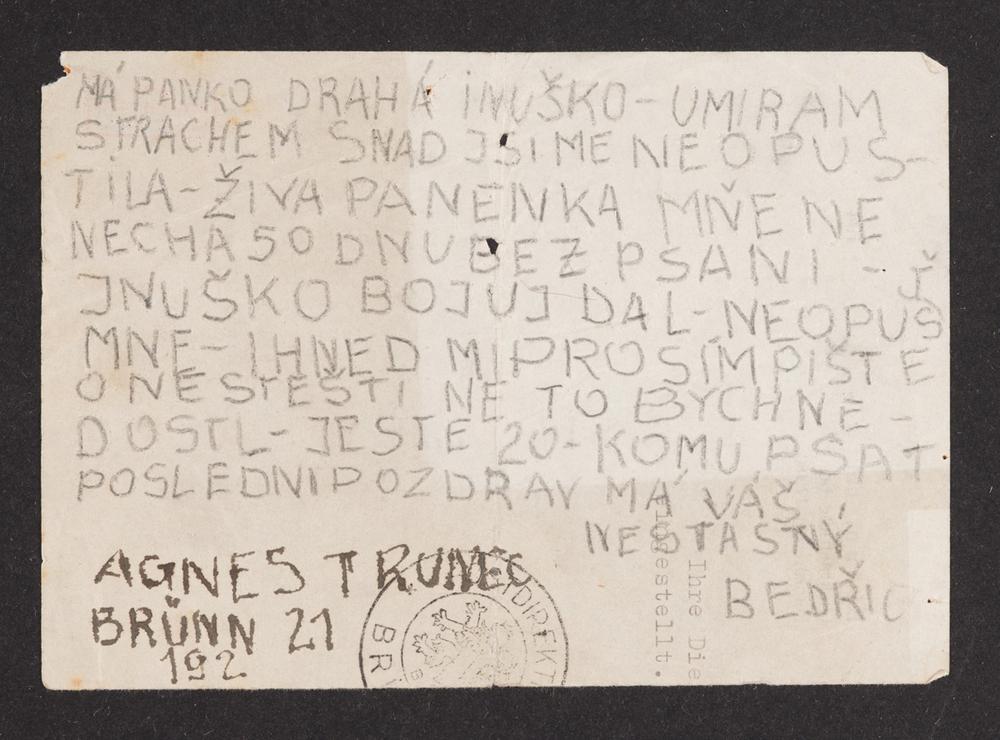 MÁ PANKO DRAHÁ INUŠKO-UMIRAM
STRACHEM SNAD JSI ME NEOPUS-
TILA-ŽIVA PANENKA MŇE NE
NECHÁ 50 DNU BEZ PSANI-
JNUŠKO BOJUJ DAL-NEOPUŠ
MNE-IHNED MI PROSÍM PIŠTE
O NESTĚSTI NE TO BYCH NE-
DOSTL-JESTE 20-KOMU PSAT
POSLEDNI POZDRAV MÁ VÁŠ
NESTASTNÝ
BEDŘIC
AGNES TRUNEC
BRÜNN 21
192
Ihre Die
estellt.
DIREKT
BR